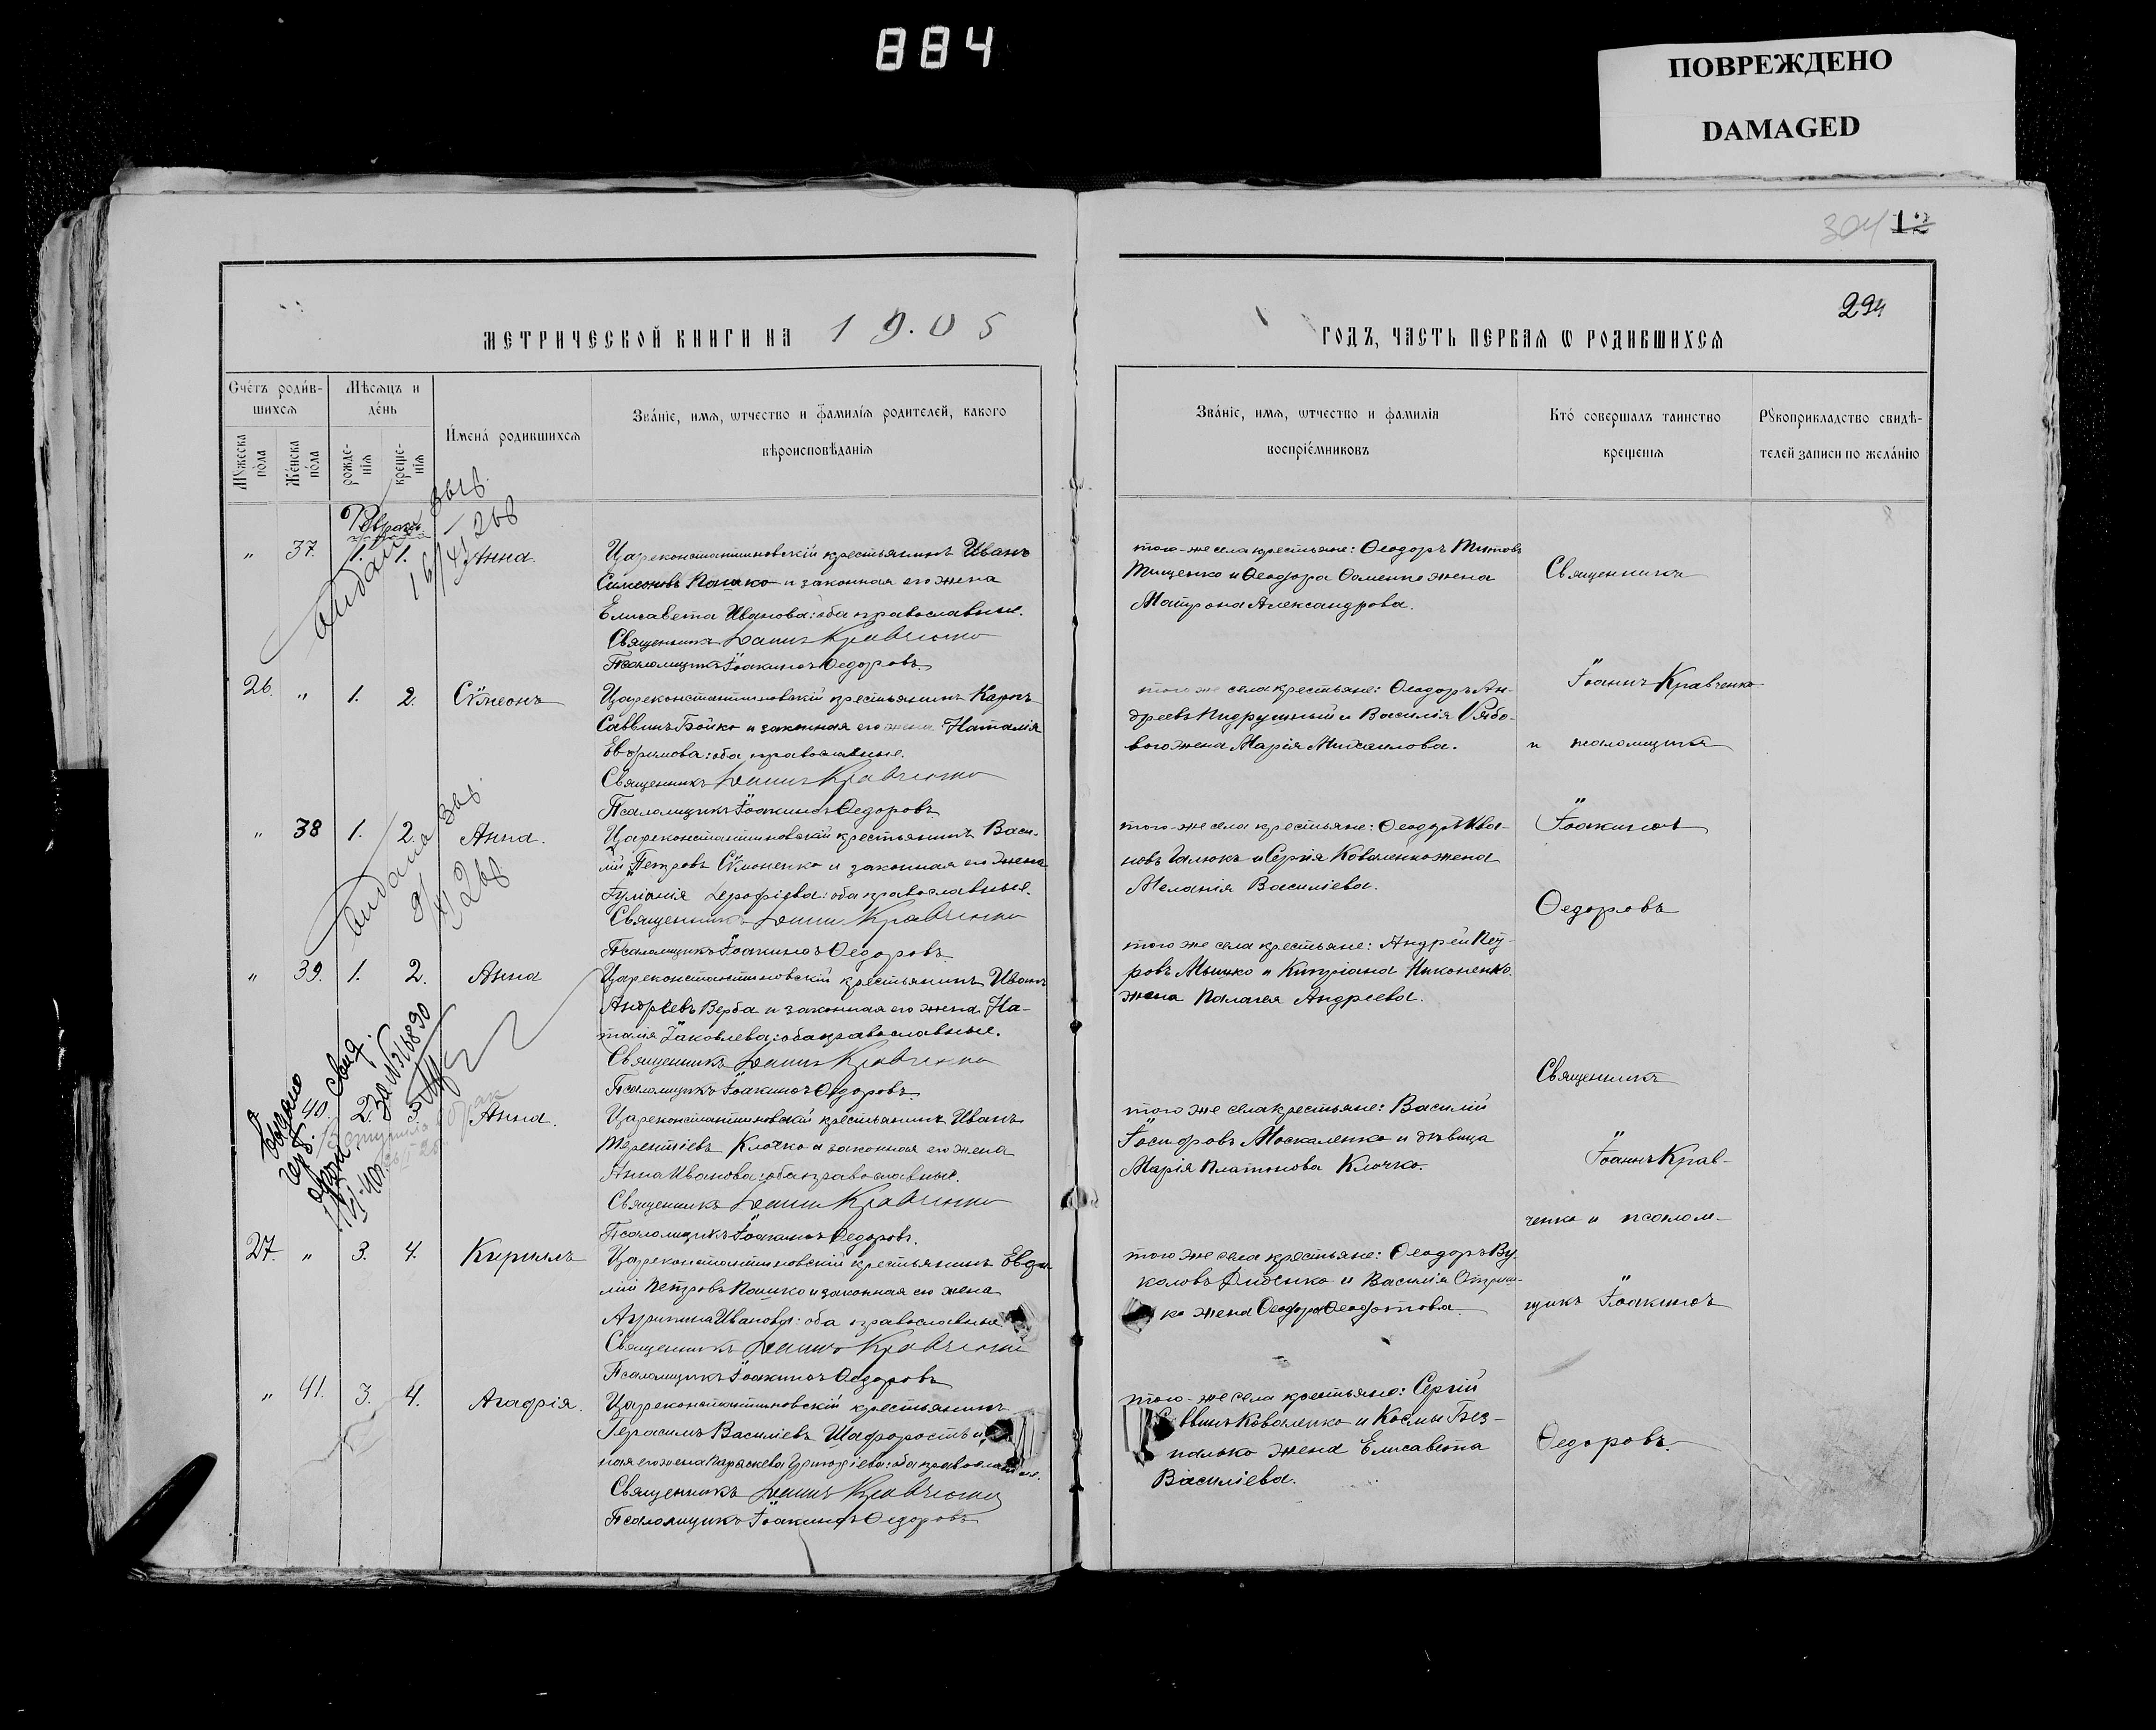 884
ПОВРЕЖДЕНО
DAMAGED
304 12
294
МЕТРИЧЕСКОЙ КНИГИ НА 1905
ГОДЪ, ЧАСТЬ ПЕРВАЯ Ѡ РОДИВШИХСЯ
Счётъ роди́вшихся
Мѣсяцъ и де́нь
И́мена́ родившихся
Зва́ніе, имя, ѡтчество и фамилі́я родителей, какого
вѣроисповѣданія
Зва́ніе, имя, ѡтчество и фамилія
воспріе́мниковъ
Кто́ совершалъ таинство
крещенія
Рꙋкоприкладство свидѣ-
телей записи по жела́нію
Мꙋжеска по́ла
Же́нска по́ла
рожде-нія
креще-нія
" 37. 1. 1. Анна.
Цареконстантиновскій крестьянинъ Иванъ
Симеоновъ Пашко и законная его жена
Елисавета Иванова: оба православные.
Священникъ Іоаннъ Кравченко
Псаломщикъ Іоакимъ Ѳедоровъ
того-же села крестьяне: Ѳеодоръ Титовъ
Тищенко и Ѳеодора жена
Матрона Александрова.
26. " 1. 2. Сѵмеонъ
Цареконстантиновскій крестьянинъ Карпъ
Саввинъ Бойко и законная его жена Наталія
Евфимова: оба православные.
Священникъ Іоаннъ Кравченко
Псаломщикъ Іоакимъ Ѳедоровъ
того же села крестьяне: Ѳеодоръ Ан-
дреевъ и Василія Рябо-
вого жена Марія Михаилова.
" 38 1. 2. Анна.
Цареконстантиновскій крестьянинъ Васи-
лій Петровъ Сѵмоненко и законная его жена
Іуліанія Іерофіева: оба православные.
Священникъ Іоаннъ Кравченко
Псаломщикъ Іоакимъ Ѳедоровъ
того-же села крестьяне: Ѳеодоръ Ива-
новъ Галюкъ и Сергія Коваленко жена
Меланія Василіева.
" 39. 1. 2. Анна
Цареконстантиновскій крестьянинъ Иванъ
Андреевъ Верба и законная его жена На-
талія Іаковлева: оба православные.
Священникъ Іоаннъ Кравченко
Псаломщикъ Іоакимъ Ѳедоровъ
того же села крестьяне: Андрей Пет-
ровъ Мышко и Кипріана Никоненко
жена Палагея Андреева.
40. 2. 3. Анна.
Цареконстантиновскій крестьянинъ Иванъ
Терентіевъ Клочко и законная его жена
Анна Иванова: оба православные.
Священникъ Іоаннъ Кравченко
Псаломщикъ Іоакимъ Ѳедоровъ.
того же села крестьяне: Василій
Іосифовъ Москаленко и дѣвица
Марія Платонова Клочко.
27. " 3. 4. Кириллъ
Цареконстантиновскій крестьянинъ Евфи-
мій Петровъ Пашко и законная его жена
Агрипина Иванова: оба православные
Священникъ Іоаннъ Кравченко
Псаломщикъ Іоакимъ Ѳедоровъ
того же села крестьяне: Ѳеодоръ Ву-
коловъ Диденко и Василія
ко жена Ѳеодора Ѳеодотова.
" 41. 3. 4. Агафія.
Цареконстантиновскій крестьянинъ
Герасимъ Василіевъ Шафоростъ и
ная его жена Параскева Григоріева: оба православные.
Священникъ Іоаннъ Кравченко
Псаломщикъ Іоакимъ Ѳедоровъ
того-же села крестьяне: Сергій
ввинъ Коваленко и Космы Без-
палько жена Елисавета
Василіева.
Священникъ
Іоаннъ Кравченко
и псаломщикъ
Іоакимъ
Ѳедоровъ
Священникъ
Іоаннъ Крав-
ченко и псалом-
щикъ Іоакимъ
Ѳедоровъ.